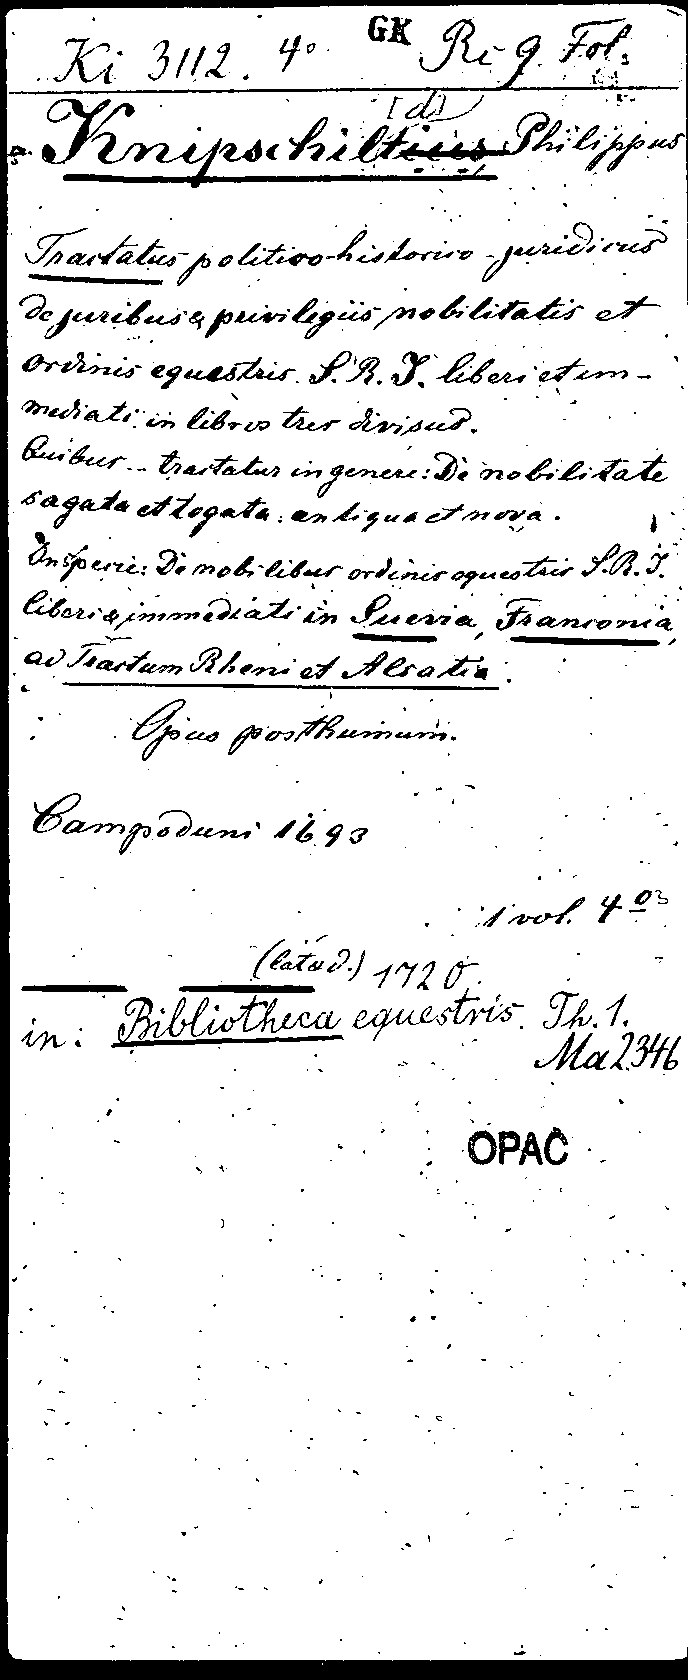 Ki 3112. 4° GK Ri 9. Fol.
[d]
Knipschiltius, Philippus
Tractatus politico-historico-juridicus
de juribus & privilegiis nobilitatis et
ordinis equestris S. R. I. liberi et im-
mediati in libros tres divisus.
Quibus .. tractatur in genere: De nobilitate
sagata et togata: antiqua et nova.
In specie: De nobilibus ordinis equestris S. R. I.
liberi & immediati in Suevia, Franconia,
ad Tractum Rheni et Alsatia.
Opus posthumum.
Campoduni 1693
1 vol. 4°
(lat. ed.) 1720
in: Bibliotheca equestris. Th. 1.
Ma 2346
OPAC